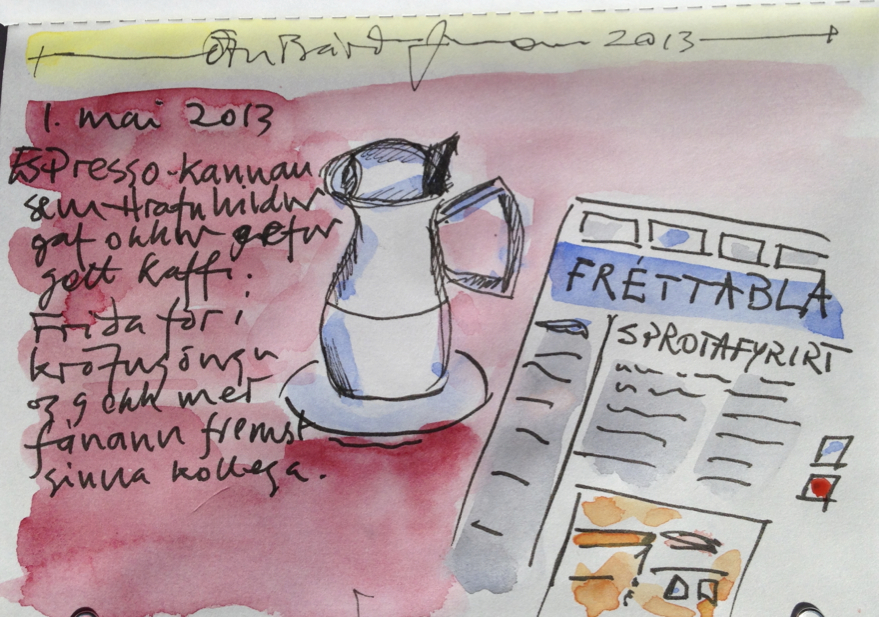 2013
1. mai 2013
Espresso-kannan
sem Hrafnhildur
gaf okkur gefur
gott kaffi.
Fríða fór í
kröfugöngu
og gekk með
fánann fremst
sinna kollega.
FRÉTTABLA
SPROTAFYRIRT